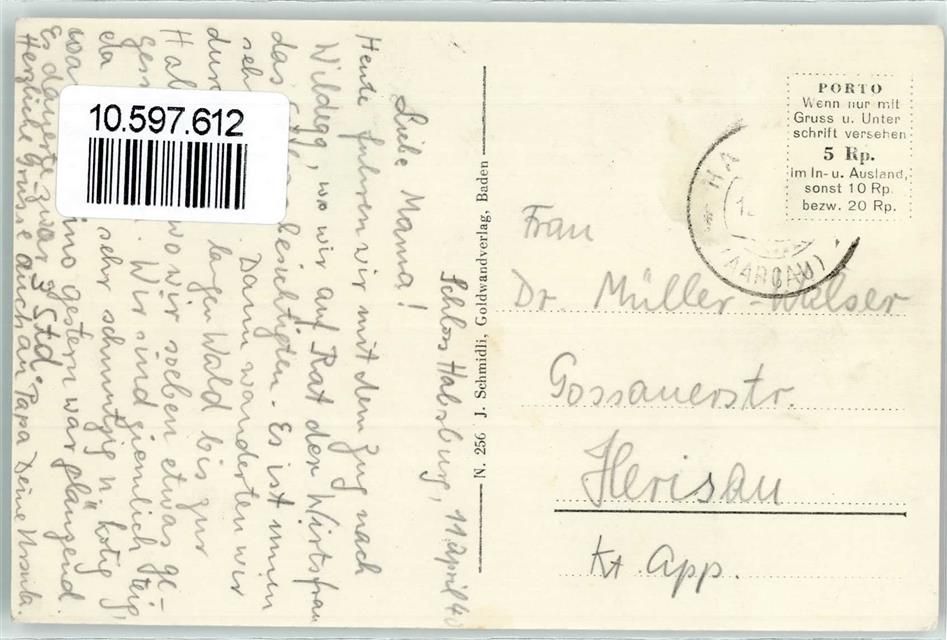 Schloss Habsburg, 11. April 40
Liebe Mama!
Heute fuhren wir mit dem Zug nach
Wildegg, wo wir auf Rat der Wirtsfrau
das besichtigten. Es ist innen
seh Dann wanderten wir
dur langen Wald bis zur
Hab wo wir soeben etwas ge-
gess Wir sind ziemlich
da sehr schmutzig u. kotig
war ino gestern war glänzend.
Es dauerte zwar 3 Std.
Herzliche Grüsse auch an Papa Deine Ursula.
10.597.612
N. 256 J. Schmidli, Goldwandverlag, Baden
PORTO
Wenn nur mit
Gruss u. Unter
schrift versehen
5 Rp.
im In- u. Ausland,
sonst 10 Rp.
bezw. 20 Rp.
HA
1
(AARGAU)
Frau
Dr. Müller-Walser
Gossauerstr.
Herisau
Kt App.